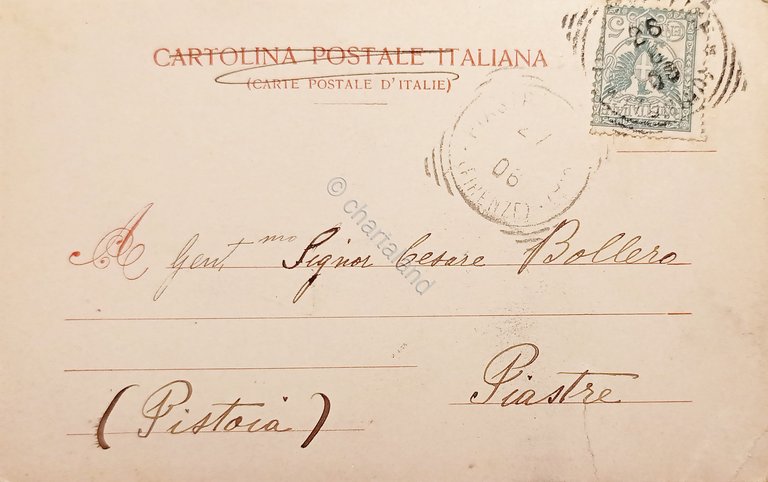 CARTOLINA POSTALE ITALIANA
(CARTE POSTALE D'ITALIE)
5
21
06
(FIRENZE)
© chartaland
A Gent.mo Signor Cesare Bollero
Piastre
(Pistoia)